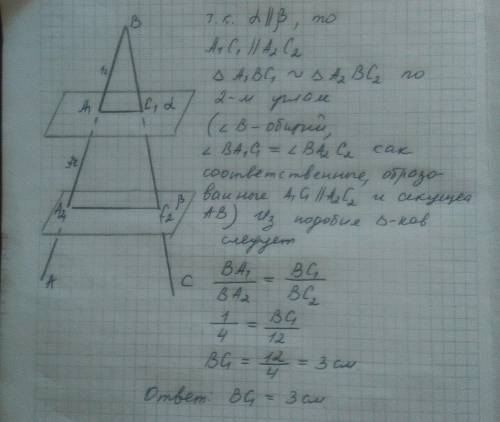 т.к. α∥β, то
A₁C₁∥A₂C₂
Δ A₁BC₁ ~ Δ A₂BC₂ по
2-м углам
(∠B - общий,
∠BA₁C₁ = ∠BA₂C₂ как
соответственные, образо-
ванные A₁C₁∥A₂C₂ и секущей
AB) Из подобия Δ-ков
следует
BA₁/BA₂ = BC₁/BC₂
1/4 = BC₁/12
BC₁ = 12/4 = 3 см
Ответ: BC₁ = 3 см
B
A₁ C₁ α
A₂ C₂ β
A C